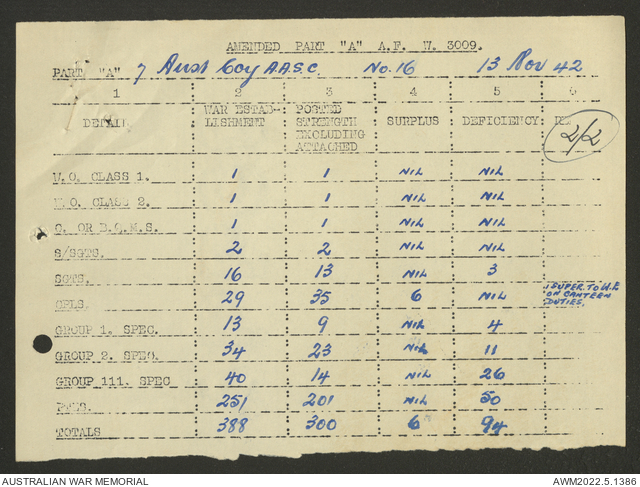 AMENDED PART "A" A.F. W. 3009.
PART "A" 7 Aust Coy A.A.S.C. No. 16 13 Nov 42
1 2 3 4 5 6
DETAIL WAR ESTAB- POSTED SURPLUS DEFICIENCY
LISHMENT STRENGTH
EXCLUDING
ATTACHED
2/2
W.O. CLASS 1. 1 1 NIL NIL
W.O. CLASS 2. 1 1 NIL NIL
C. OR B.Q.M.S. 1 1 NIL NIL
S/SGTS. 2 2 NIL NIL
SGTS. 16 13 NIL 3
CPLS. 29 35 6 NIL 1 SUPER. TO W.E.
ON CANTEEN
DUTIES.
GROUP 1. SPEC. 13 9 NIL 4
GROUP 2. SPEC. 34 23 NIL 11
GROUP 111. SPEC 40 14 NIL 26
PTES. 251 201 NIL 50
TOTALS 388 300 6 94
AUSTRALIAN WAR MEMORIAL AWM2022.5.1386